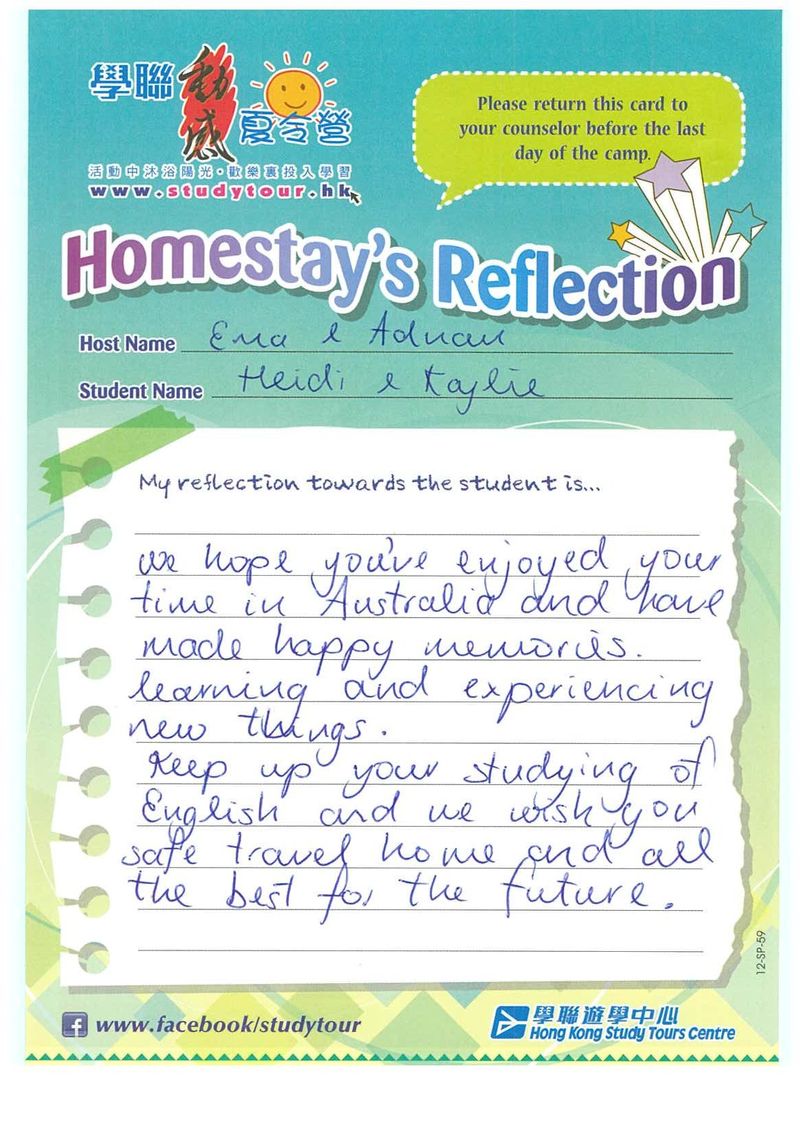 學聯動感夏令營
活動中沐浴陽光•歡樂裏投入學習
www.studytour.hk
Please return this card to
your counselor before the last
day of the camp.
Homestay's Reflection
Host Name Ema & Adnan
Student Name Heidi & Kaylie
My reflection towards the student is...
we hope you've enjoyed your
time in Australia and have
made happy memories.
learning and experiencing
new things.
Keep up your studying of
English and we wish you
safe travel home and all
the best for the future.
12-SP-59
www.facebook/studytour
學聯遊學中心
Hong Kong Study Tours Centre